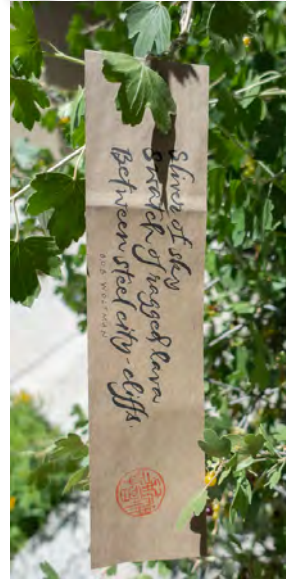 Sliver of sky
Swatch of ragged lava
Between steel city-cliffs.
BOB WHITMAN